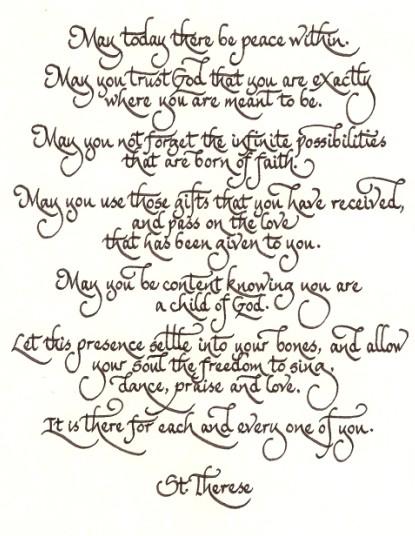 May today there be peace within.
May you trust God that you are exactly
where you are meant to be.
May you not forget the infinite possibilities
that are born of faith.
May you use those gifts that you have received,
and pass on the love
that has been given to you.
May you be content knowing you are
a child of God.
Let this presence settle into your bones, and allow
your soul the freedom to sing,
dance, praise and love.
It is there for each and every one of you.
St Therese